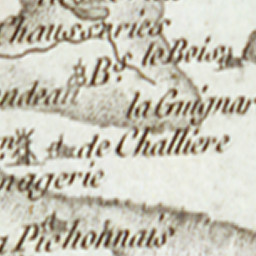 Chausseries
le Bois
B.ˢ
ndeau
la Guignar
de Challiere
nagerie
Pichonnais